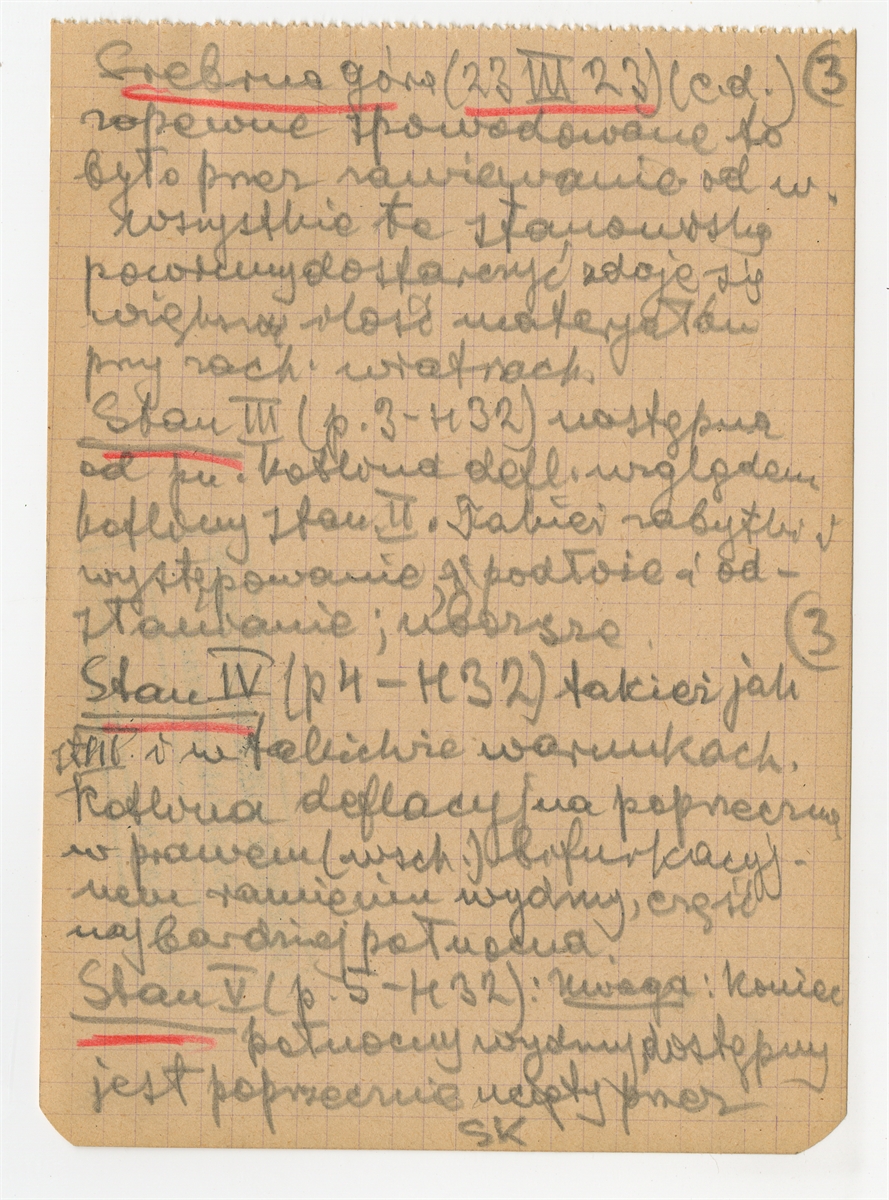 Srebrna góra (23 III 23) (c.d.) 3
zapewne spowodowane to
było przez zawiewanie od w.
Wszystkie te stanowiska
powinny dostarczyć zdaje się
większą ilość materjałów
przy zach. wiatrach.
Stan III (p. 3-H32) następna
od pn. kotlina defl. względem
kotliny stan. II. Takież zabytki i
występowanie, podłoże i od-
słanianie; uboższe 3
Stan IV (p 4 - H 32) takież jak
st III i w takichże warunkach.
Kotlina deflacyjna poprzeczna
w prawem (wsch.) bifurkacyj-
nem ramieniu wydmy, część
najbardziej północna.
Stan V (p. 5 - H 32): Uwaga: koniec
północny wydmy dostępny
jest poprzecznie ucięty przez
SK